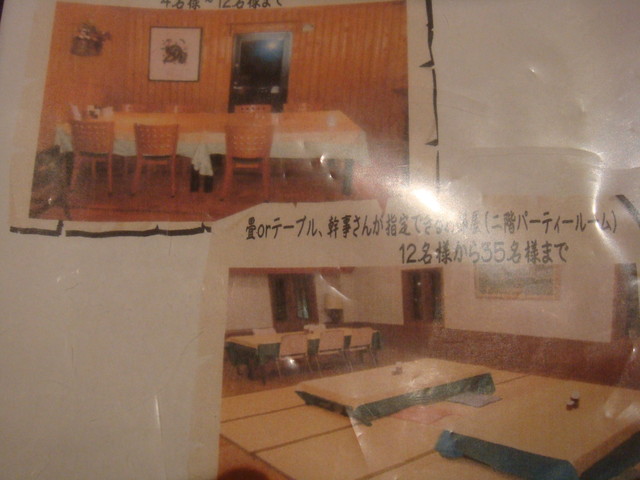 4名様～12名様まで
畳orテーブル、幹事さんが指定できる (二階パーティールーム)
12名様から35名様まで